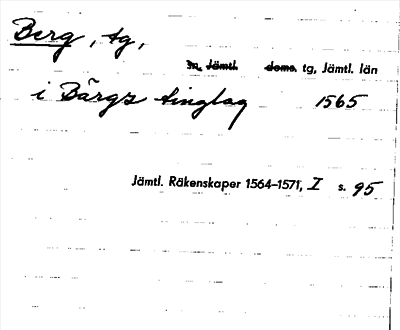 Berg, tg,
sn, Jämtl. doms. tg, Jämtl. län
i Bärgs tinglag 1565
Jämtl. Räkenskaper 1564–1571, I s. 95